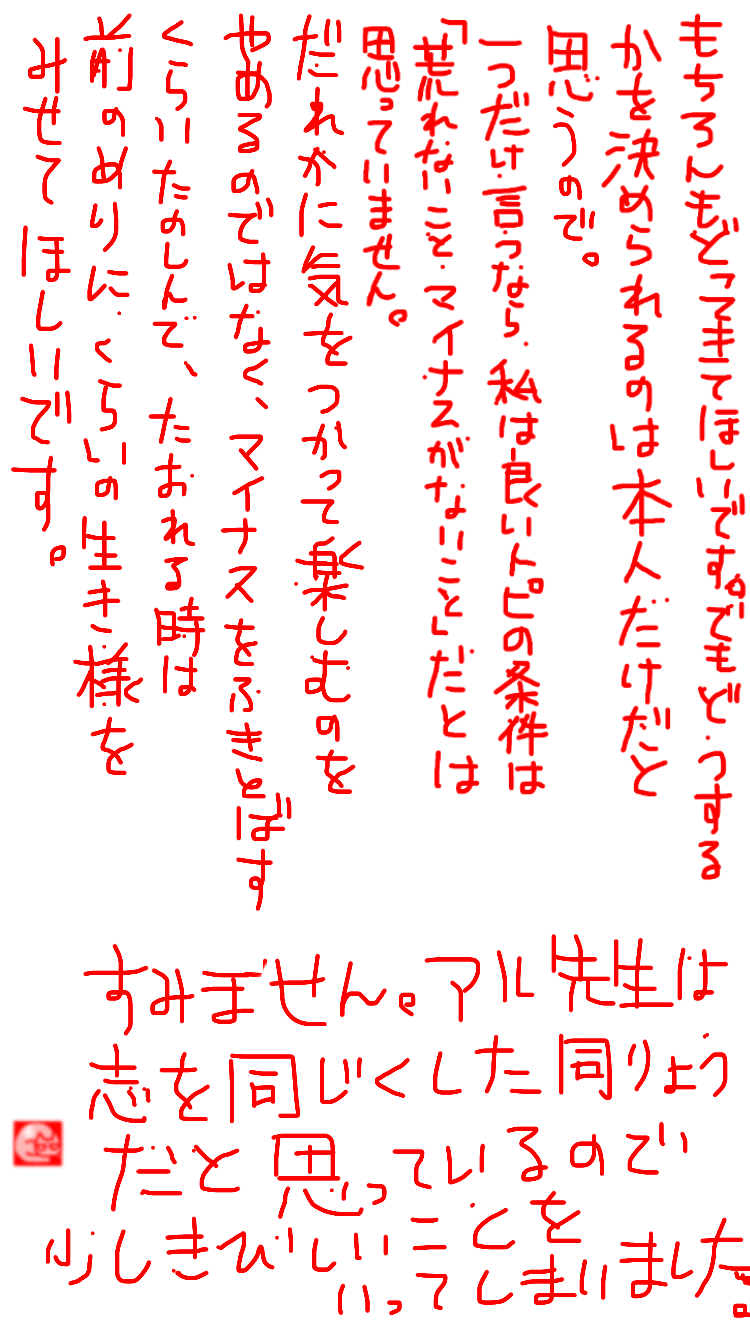 もちろんもどってきてほしいです。でもどうする
かを決められるのは本人だけだと
思うので。
一つだけ言うなら、私は良いトピの条件は
「荒れないこと・マイナスがないこと」だとは
思っていません。
だれかに気をつかって楽しむのを
やめるのではなく、マイナスをふきとばす
くらいたのしんで、たおれる時は
前のめりに、くらいの生き様を
みせてほしいです。
すみません。アル先生は
志を同じくした同りょう
だと思っているので
少しきびしいことを
いってしまいました。